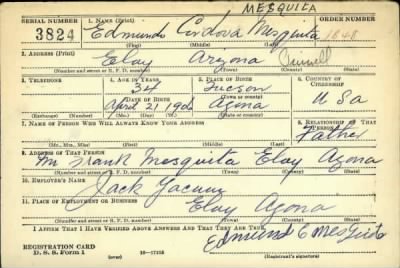 MESQUITA
SERIAL NUMBER 1. NAME (Print) ORDER NUMBER
3824 Edmundo Cordova Mesquita 1848
(First) (Middle) (Last)
2. ADDRESS (Print)
Eloy Arizona Pinal
(Number and street or R. F. D. number) (Town) (County) (State)
3. TELEPHONE 4. AGE IN YEARS 5. PLACE OF BIRTH 6. COUNTRY OF CITIZENSHIP
34 Tucson
DATE OF BIRTH (Town or county)
April 21 1906 Azona U S a
(Exchange) (Number) (Mo.) (Day) (Yr.) (State or country)
7. NAME OF PERSON WHO WILL ALWAYS KNOW YOUR ADDRESS 8. RELATIONSHIP OF THAT PERSON
Father
9. ADDRESS OF THAT PERSON
Mr Frank Mesquita Eloy Azona
(Number and street or R. F. D. number) (Town) (County) (State)
10. EMPLOYER'S NAME
Jack
11. PLACE OF EMPLOYMENT OR BUSINESS
Eloy Azona
(Number and street or R. F. D. number) (Town) (County) (State)
I AFFIRM THAT I HAVE VERIFIED ABOVE ANSWERS AND THAT THEY ARE TRUE.
REGISTRATION CARD
D. S. S. Form 1 16-17105
Edmund C Mesquita
(Registrant's signature)